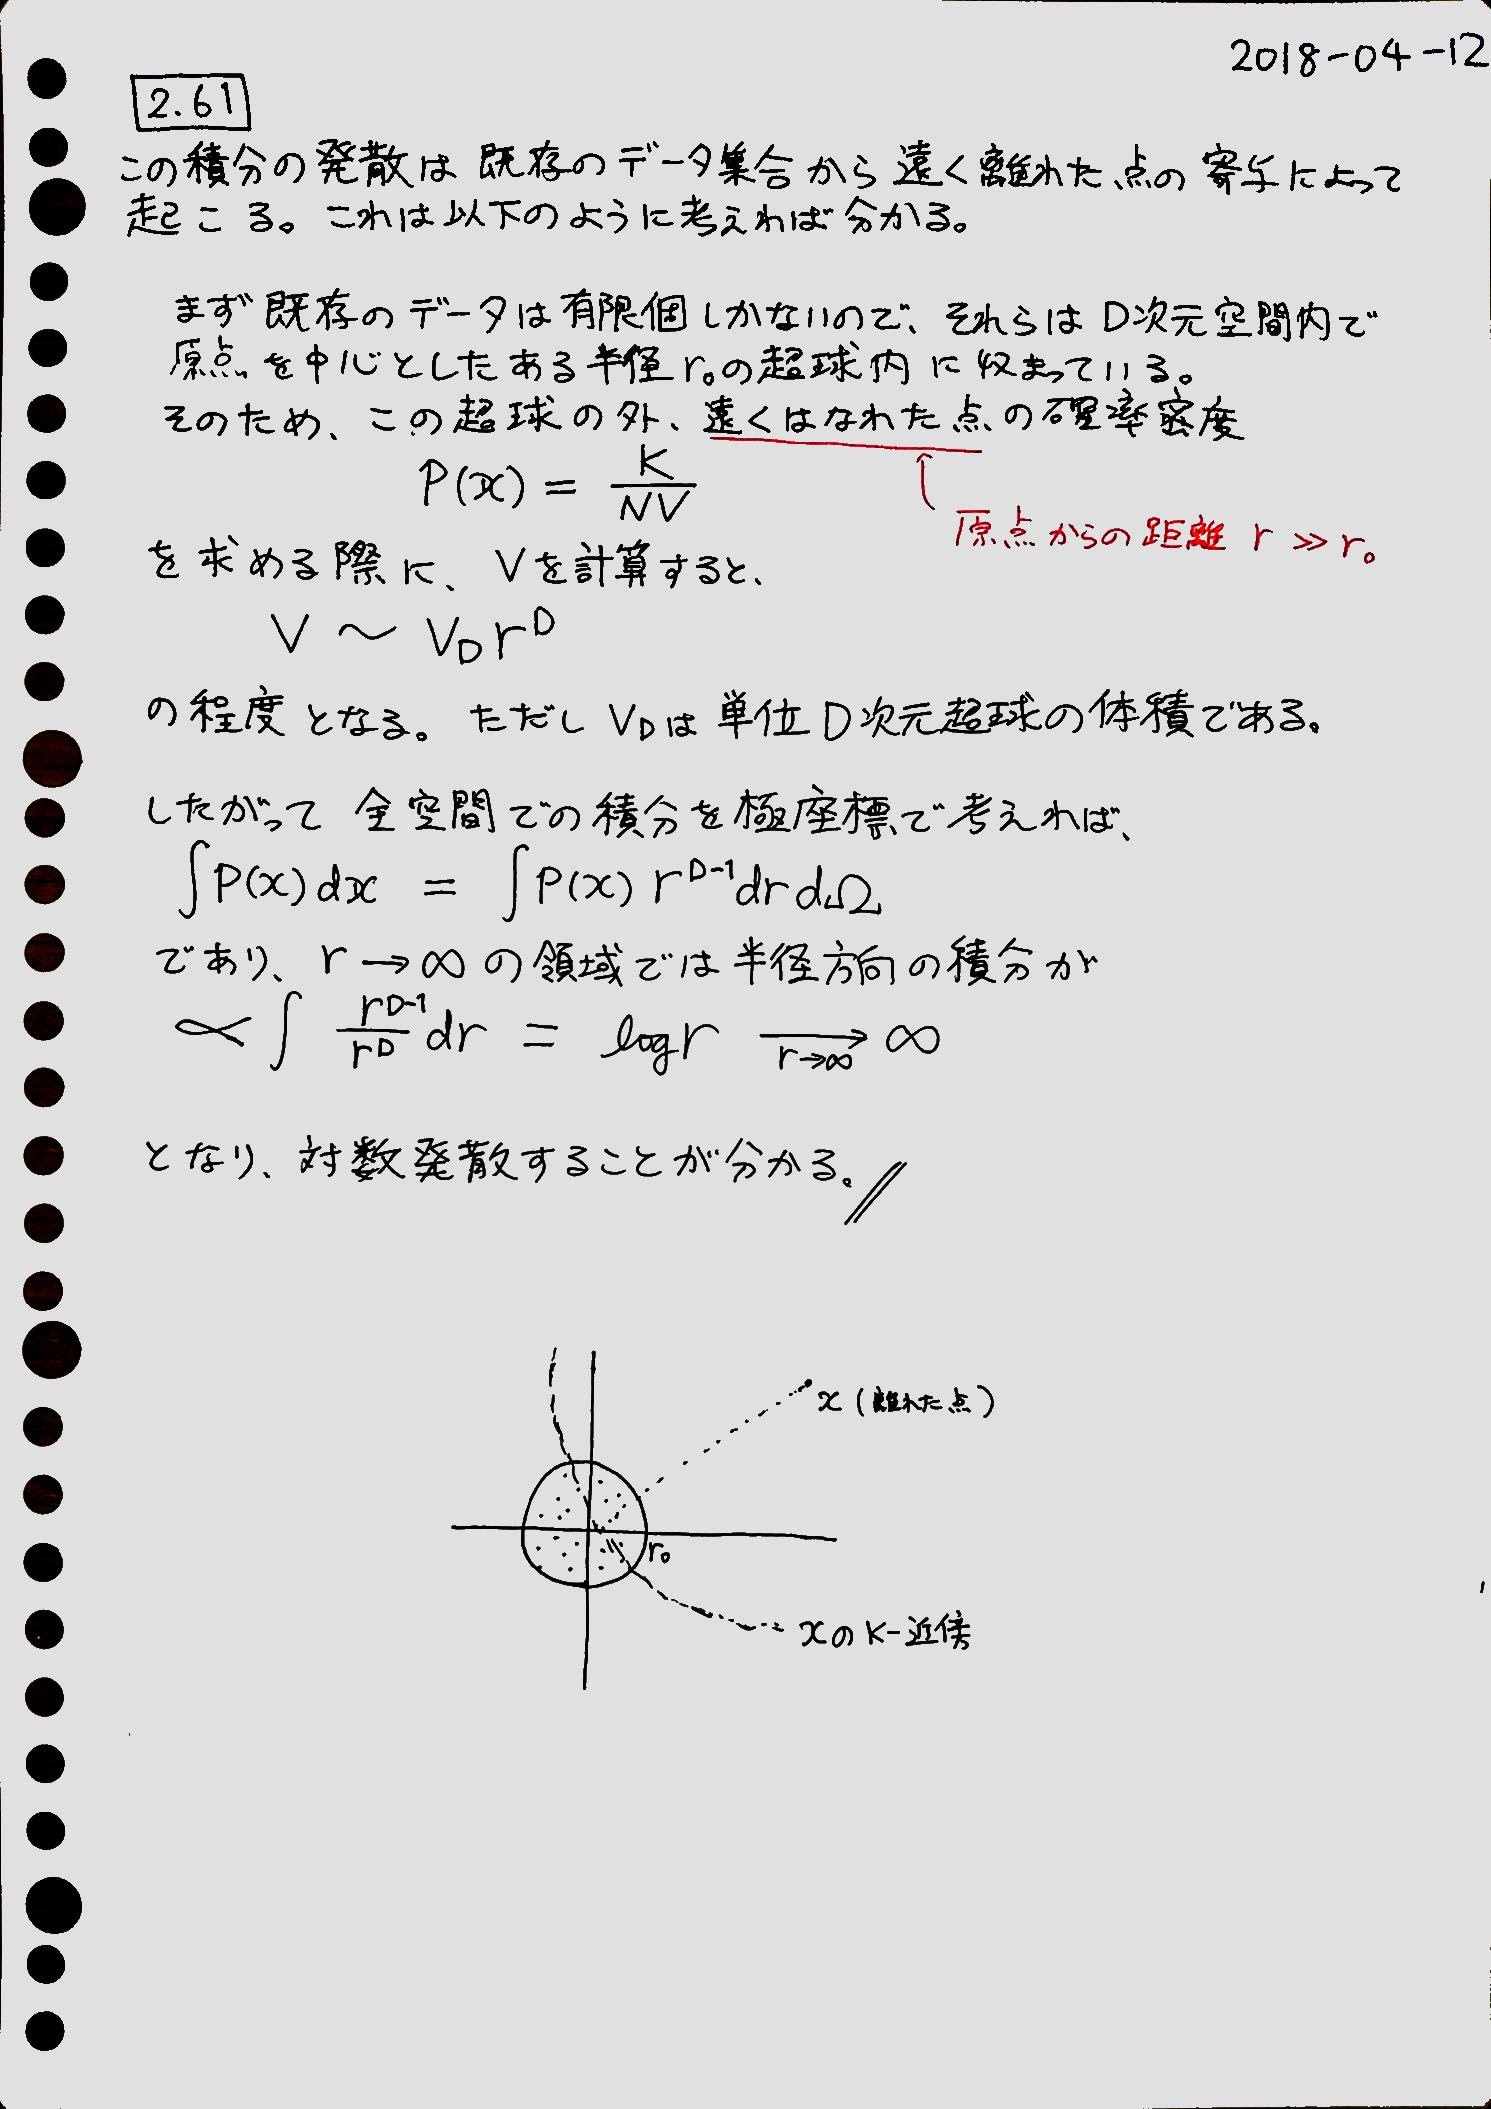 2018-04-12
2.61
この積分の発散は既存のデータ集合から遠く離れた点の寄与によって
起こる。これは以下のように考えれば分かる。
まず既存のデータは有限個しかないので、それらは D次元空間内で
原点を中心としたある半径r₀の超球内に収まっている。
そのため、この超球の外、遠くはなれた点の確率密度
P(x) = K/NV
原点からの距離 r ≫ r₀
を求める際に、Vを計算すると、
V ~ V_D r^D
の程度となる。ただし V_Dは単位D次元超球の体積である。
したがって全空間での積分を極座標で考えれば、
∫P(x)dx = ∫P(x) r^{D-1} dr dΩ
であり、r→∞の領域では半径方向の積分が
∝ ∫ r^{D-1}/r^D dr = log r →_{r→∞} ∞
となり、対数発散することが分かる。//
x (離れた点)
r₀
xのK-近傍